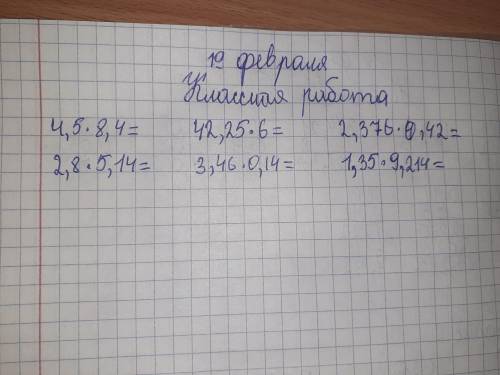 19 февраля
Классная работа
4,5·8,4= 42,25·6= 2,376·0,42=
2,8·5,14= 3,46·0,14= 1,35·9,214=